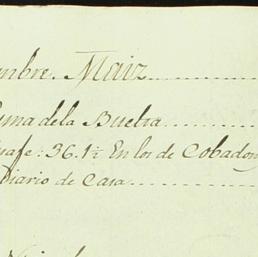 mbre. Maiz
uma dela Buelta
uafe: 36. 1½ En los de Cobadon
Diario de Casa